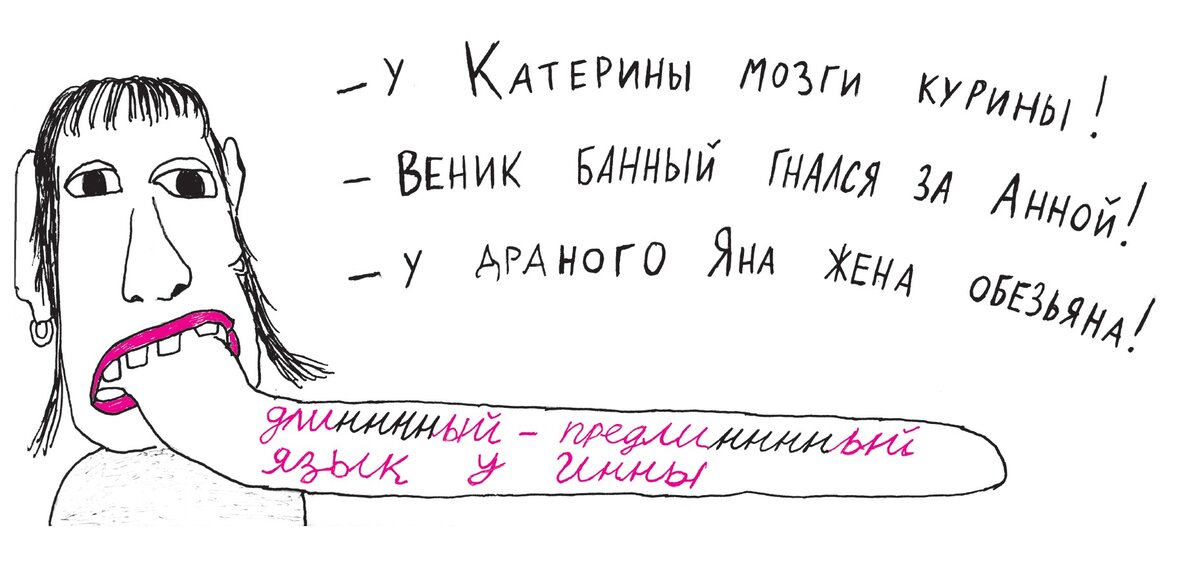 – У КАТЕРИНЫ МОЗГИ КУРИНЫ!
– ВЕНИК БАННЫЙ ГНАЛСЯ ЗА АННОЙ!
– У ДРАНОГО ЯНА ЖЕНА ОБЕЗЬЯНА!
длиннннный – предлиннннный
язык у Инны